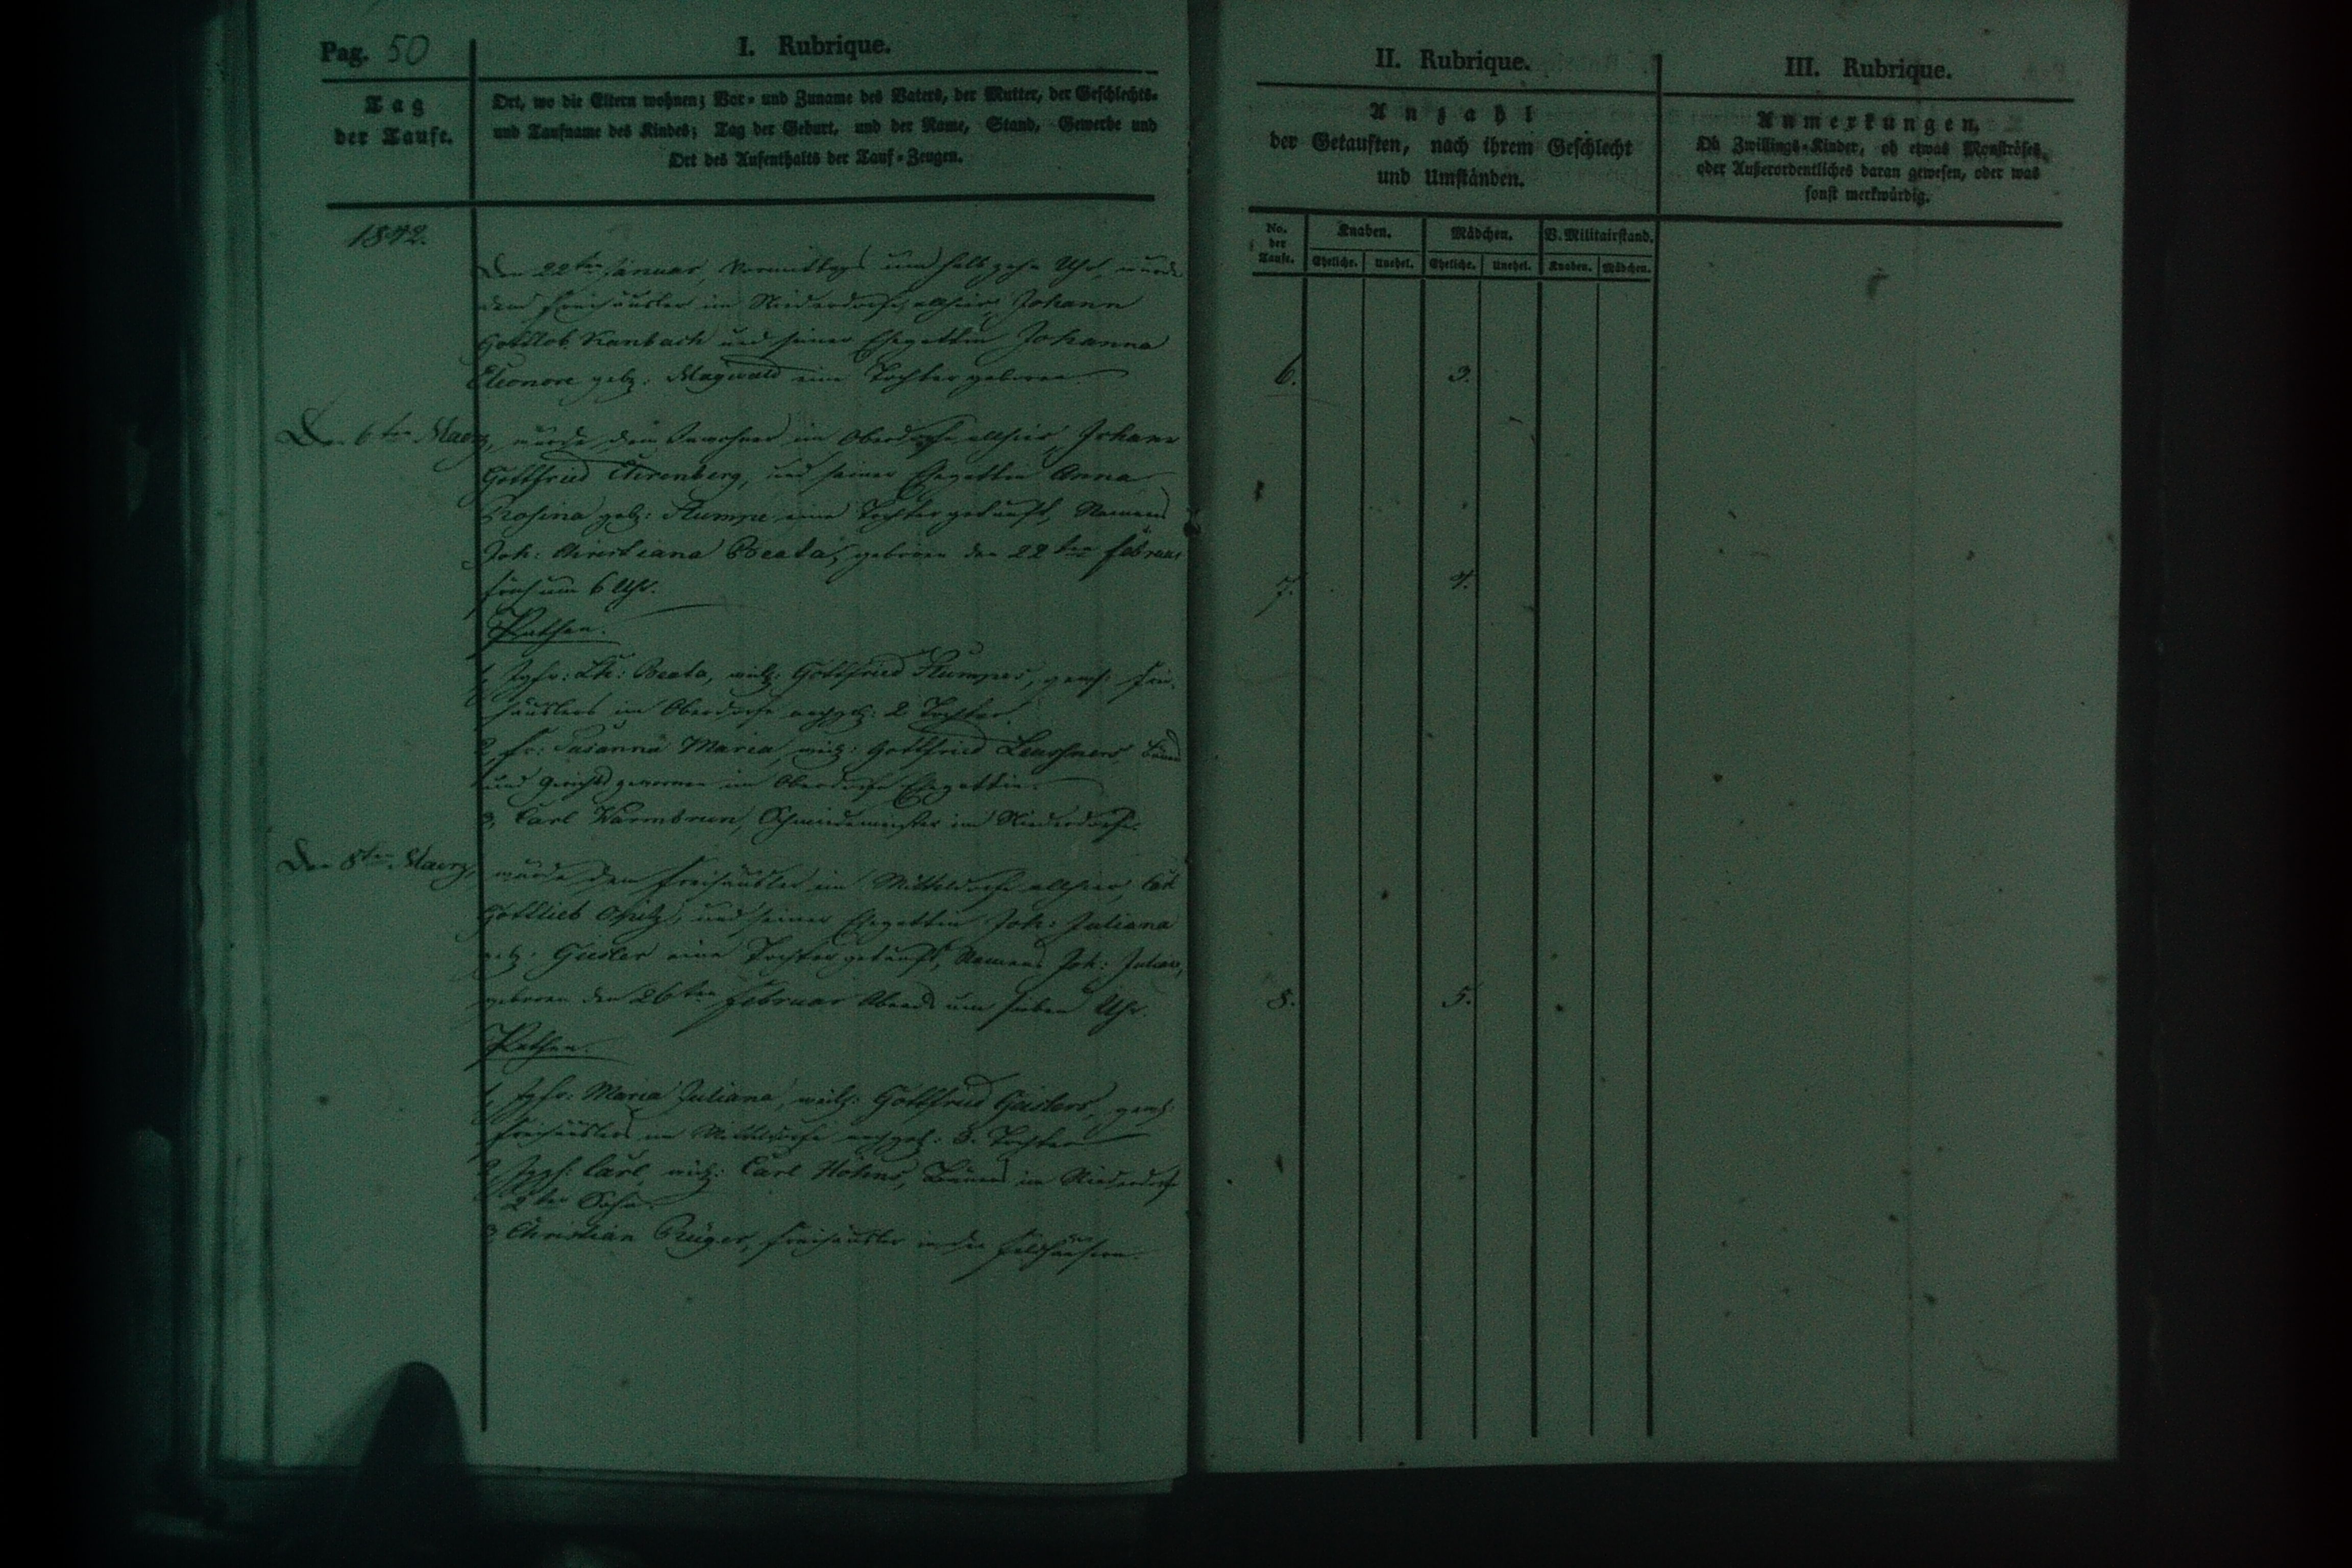 Pag. 50
I. Rubrique.
Tag
der Taufe.
Ort, wo die Eltern wohnen; Vor- und Zuname des Vaters, der Mutter, der Geschlechts-
und Taufname des Kindes; Tag der Geburt, und der Name, Stand, Gewerbe und
Ort des Aufenthalts der Tauf-Zeugen.
1842.
Den 22ten Januar, Vormittags um halb zehn Uhr, wurde
dem Freihäusler im Niederdorfe allhier, Johann
Gottlob Kanbach und seiner Ehegattin Johanna
Eleonore geb: Maywald eine Tochter geboren.
Den 6ten Maerz, wurde dem Inwohner im Oberdorfe allhier, Johann
Gottfried Ehrenberg, und seiner Ehegattin Anna
Rosina geb: Stumpe eine Tochter getauft, Namens
Joh: Christiana Beata, geboren den 22ten Februar
früh um 6 Uhr.
Pathen.
1, Jgfr: Beata, Gottfried Stumpes, gewes: Frei-
häuslers im Oberdorfe 2 Tochter.
2, Fr: Susanna Maria, Gottfried Leuschners, Bauer
und im Oberdorfe Ehegattin.
3, Carl Warmbrun, Schmiedemeister im Niederdorfe.
Den 8ten Maerz, wurde dem Freihäusler im Mitteldorfe allhier, Carl
Gottlieb Opitz, und seiner Ehegattin Joh: Juliana
geb: Geisler eine Tochter getauft, Namens Joh: Julian,
geboren den 26ten Februar Abends um sieben Uhr.
Pathen.
1, Jgfr: Maria Juliana, Gottfried Geislers, gewes:
Freihäuslers im Mitteldorfe 3. Tochter
2, Jggs: Carl, Carl Höhns, Bauers im Niederdorfe
2ter Sohn.
3 Christian Rüger, Freihäusler in den Feldhäusern.
II. Rubrique.
Anzahl
der Getauften, nach ihrem Geschlecht
und Umständen.
No. der Taufe. Knaben. Mädchen. B. Militairstand.
Eheliche. Unehel. Eheliche. Unehel. Knaben. Mädchen.
6. 3.
7. 4.
8. 5.
III. Rubrique.
Anmerkungen.
Ob Zwillings-Kinder, ob etwas Monströses,
oder Außerordentliches daran gewesen, oder was
sonst merkwürdig.